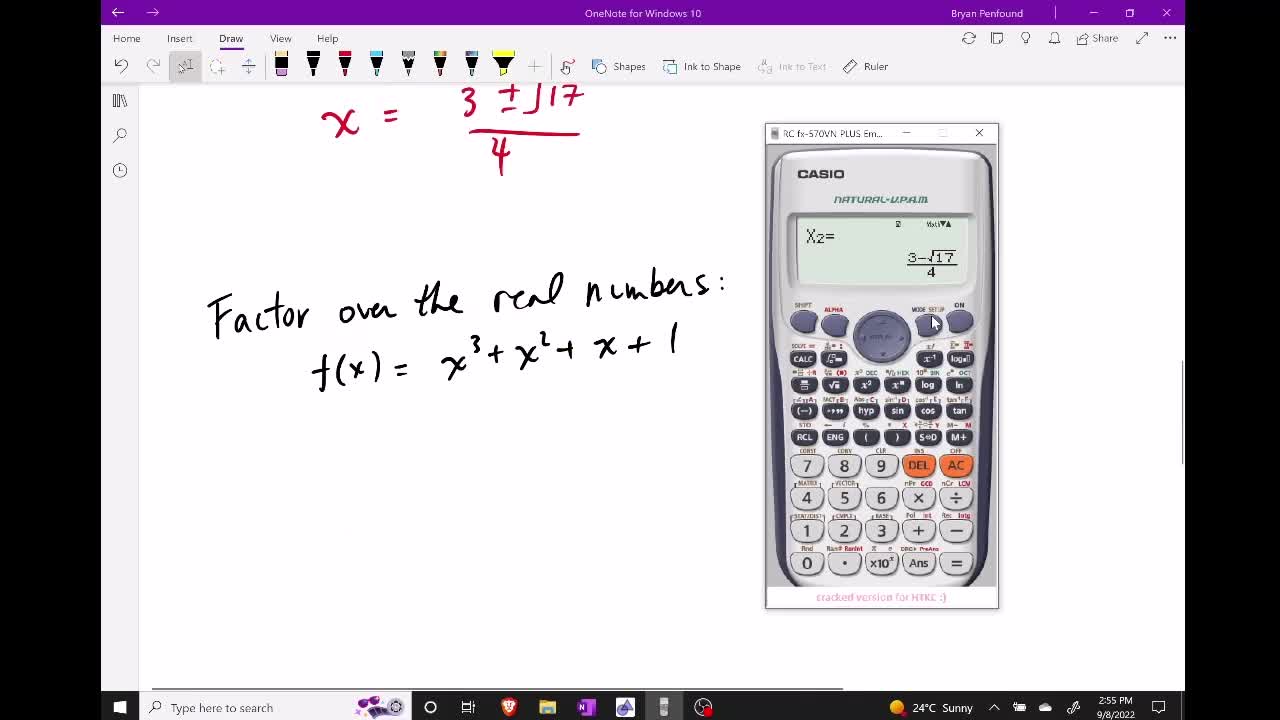 OneNote for Windows 10
Bryan Penfound
Home Insert Draw View Help
Share
Shapes Ink to Shape Ink to Text Ruler
x = 3 ± √17 / 4
Factor over the real numbers:
f(x) = x³ + x² + x + 1
RC fx-570VN PLUS Em...
CASIO
NATURAL-V.P.A.M.
Math▼▲
X2=
3-√17
4
SHIFT ALPHA MODE SETUP ON
CALC x⁻¹
x² log ln
(−) hyp sin cos tan
RCL ENG ( ) S⇔D M+
7 8 9 DEL AC
4 5 6 × ÷
1 2 3 + −
0 . ×10ˣ Ans =
cracked version for HTKC :)
Type here to search
24°C Sunny
2:55 PM
9/8/2022